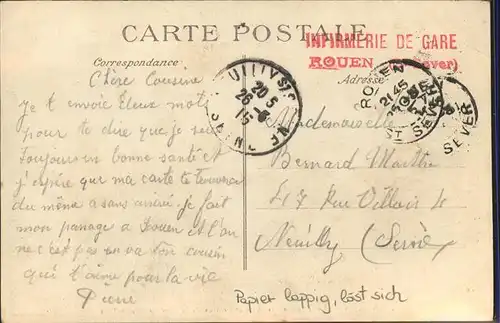 CARTE POSTALE
INFIRMERIE DE GARE
ROUEN
Correspondance
Adresse
Chère Cousine
je t envoie deux mots
pour te dire que je suis
toujours en bonne santé et
j'éspère que ma carte te trouvera
du même a sans autre. je fait
mon passage a Rouen et l'on
ne c'est pas on va ton cousin
qui t'aime pour la vie
Pierre
Mademoiselle
Bernard Marthe
47 Rue Villiers
Neuilly (Seine)
ROUEN
ST SEVER
21 45
SEVER
20 5
26 -6
15
SEINE
Papier lappig, löst sich